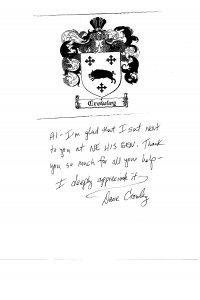 Crowley
Al - I'm glad that I sat next
to you at NE HIS GEN. Thank
you so much for all your help -
I deeply appreciate it
Dave Crowley